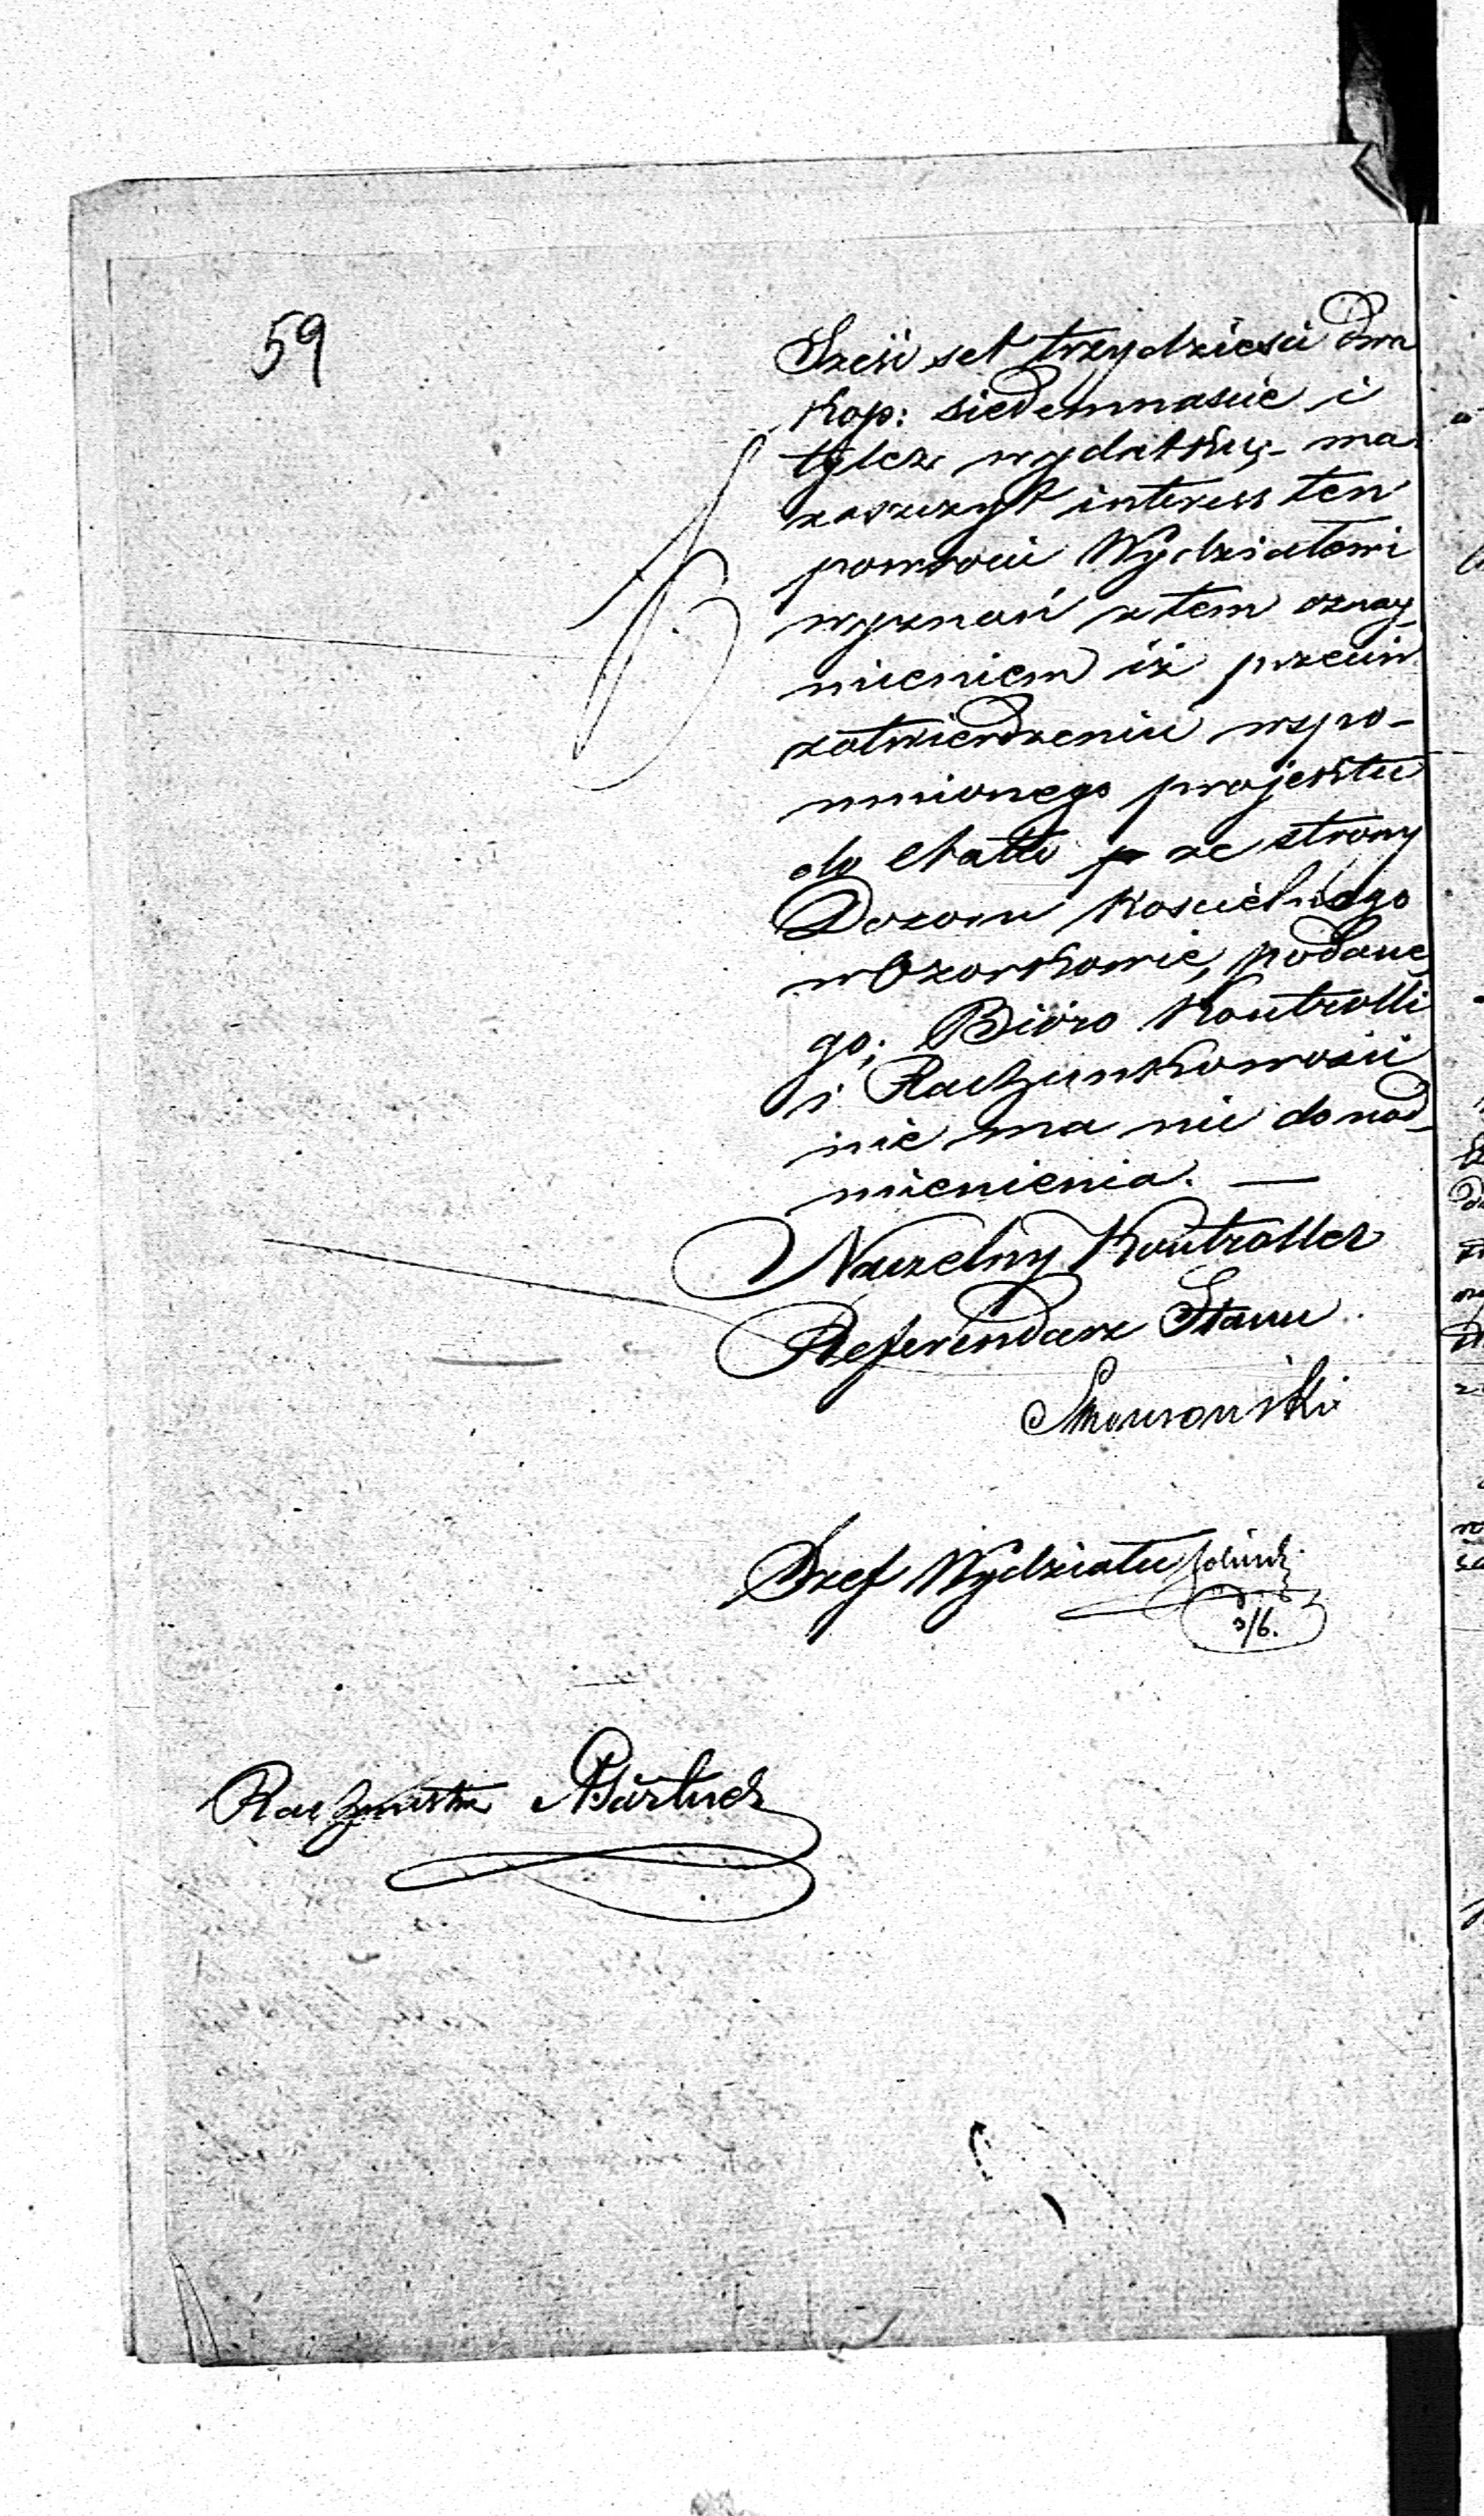 59
Sześć set trzydzieści dwa
Kop: siedemnaście i
tyleż wydatku, ma
zaszczyt interess ten
powrócić Wydziałowi
wyznań z tem oznay-
mieniem iż przeciw
zatwierdzeniu wspo-
mnionego projektu
do etatu ze strony
Dozoru Kościelnego
w Ozorkowie, podane
go; Bióro Kontrolli
i Rachunkowości
nie ma nic do nad-
mienienia. —
Naczelny Kontroller
Referendarz Stanu
Szef Wydziału
3/6.
Rachmistrz